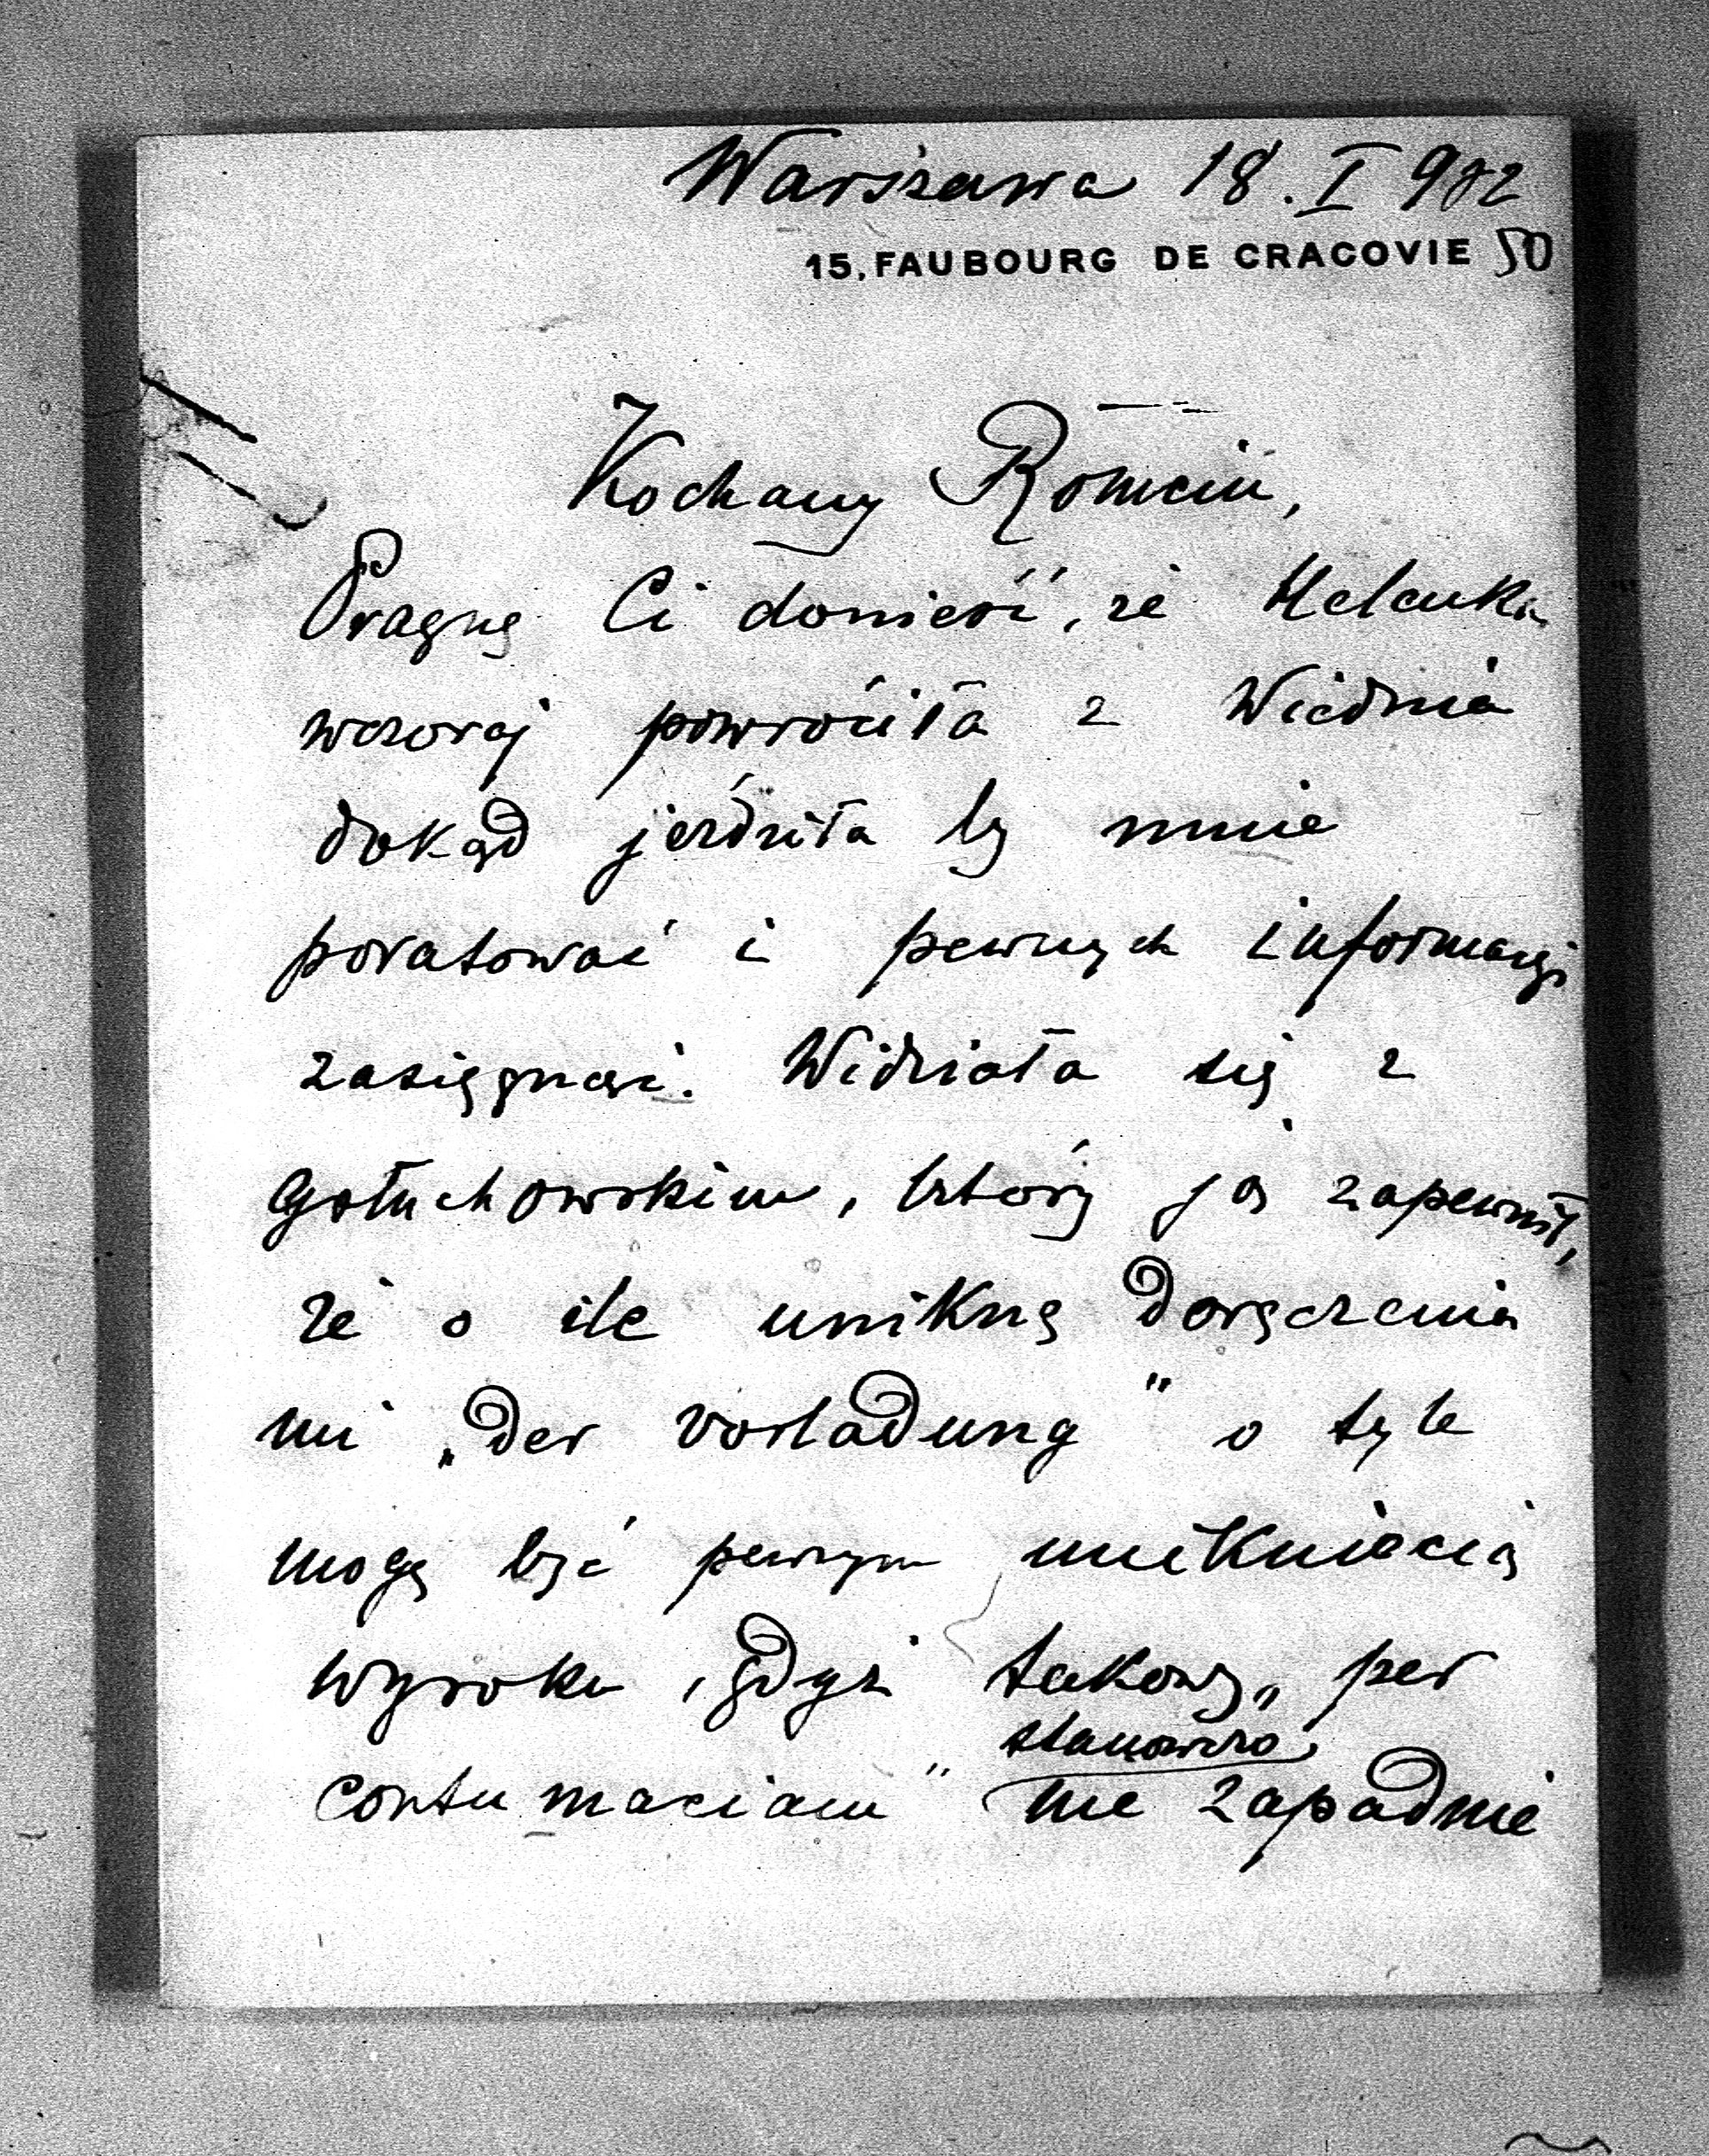 Warszawa 18. I 902
15, FAUBOURG DE CRACOVIE 50
Kochany Romciu,
Pragnę Ci donieść, że Helenka
wczoraj powróciła z Wiednia
dokąd jeździła by mnie
poratować i pewnych informacyj
zasięgnąć. Widziała się z
Gołuchowskim, który ją zapewnił,
że o ile uniknę doręczenia
mi „der Vorladung" o tyle
mogę być pewnym uniknięcia
wyroku, gdyż takowy „per
stanowczo
contumaciam" nie zapadnie